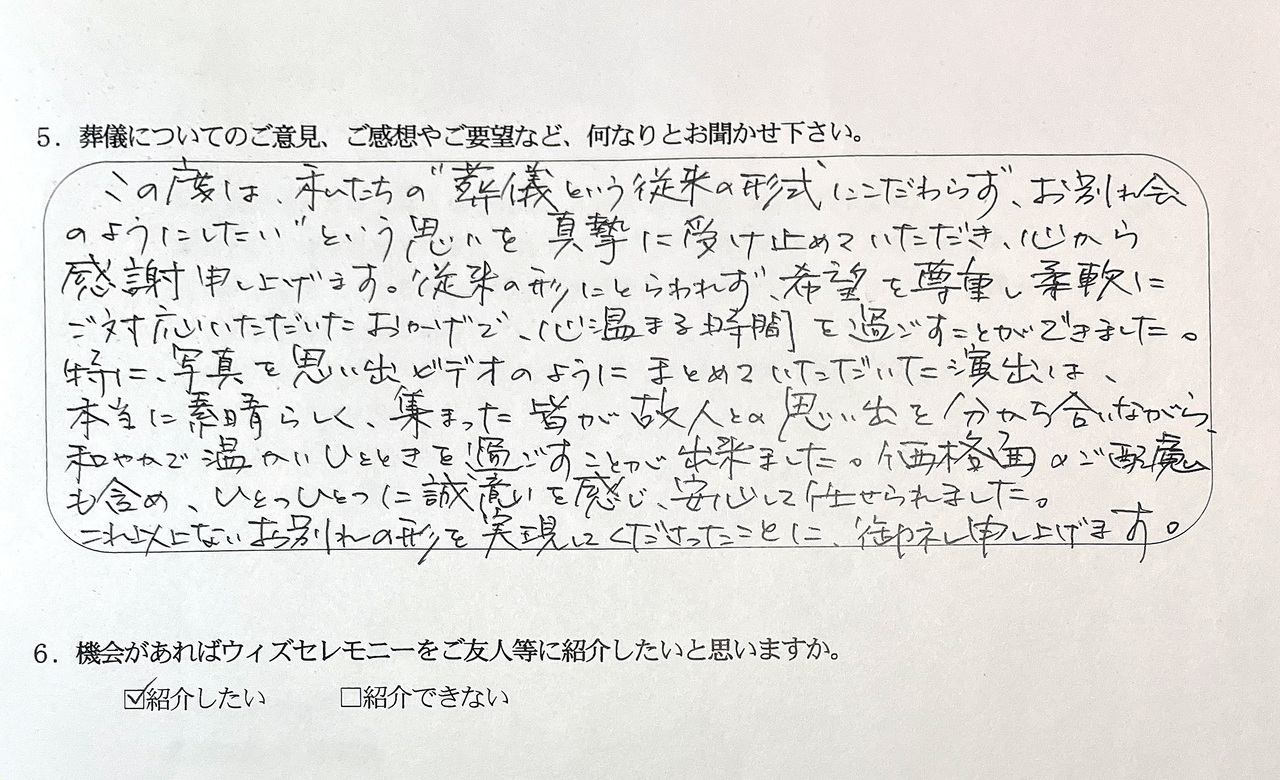 5．葬儀についてのご意見、ご感想やご要望など、何なりとお聞かせ下さい。
この度は、私たちの"葬儀という従来の形式にこだわらず、お別れ会
のようにしたい"という思いを真摯に受け止めていただき、心から
感謝申し上げます。従来の形にとらわれず、希望を尊重し柔軟に
ご対応いただいたおかげで、心温まる時間を過ごすことができました。
特に、写真を思い出ビデオのようにまとめていただいた演出は、
本当に素晴らしく、集まった皆が故人との思い出を分かち合いながら、
和やかで温かいひとときを過ごすことが出来ました。価格面のご配慮
も含め、ひとつひとつに誠意を感じ、安心して任せられました。
これ以上ないお別れの形を実現してくださったことに、御礼申し上げます。
6．機会があればウィズセレモニーをご友人等に紹介したいと思いますか。
☑紹介したい　□紹介できない